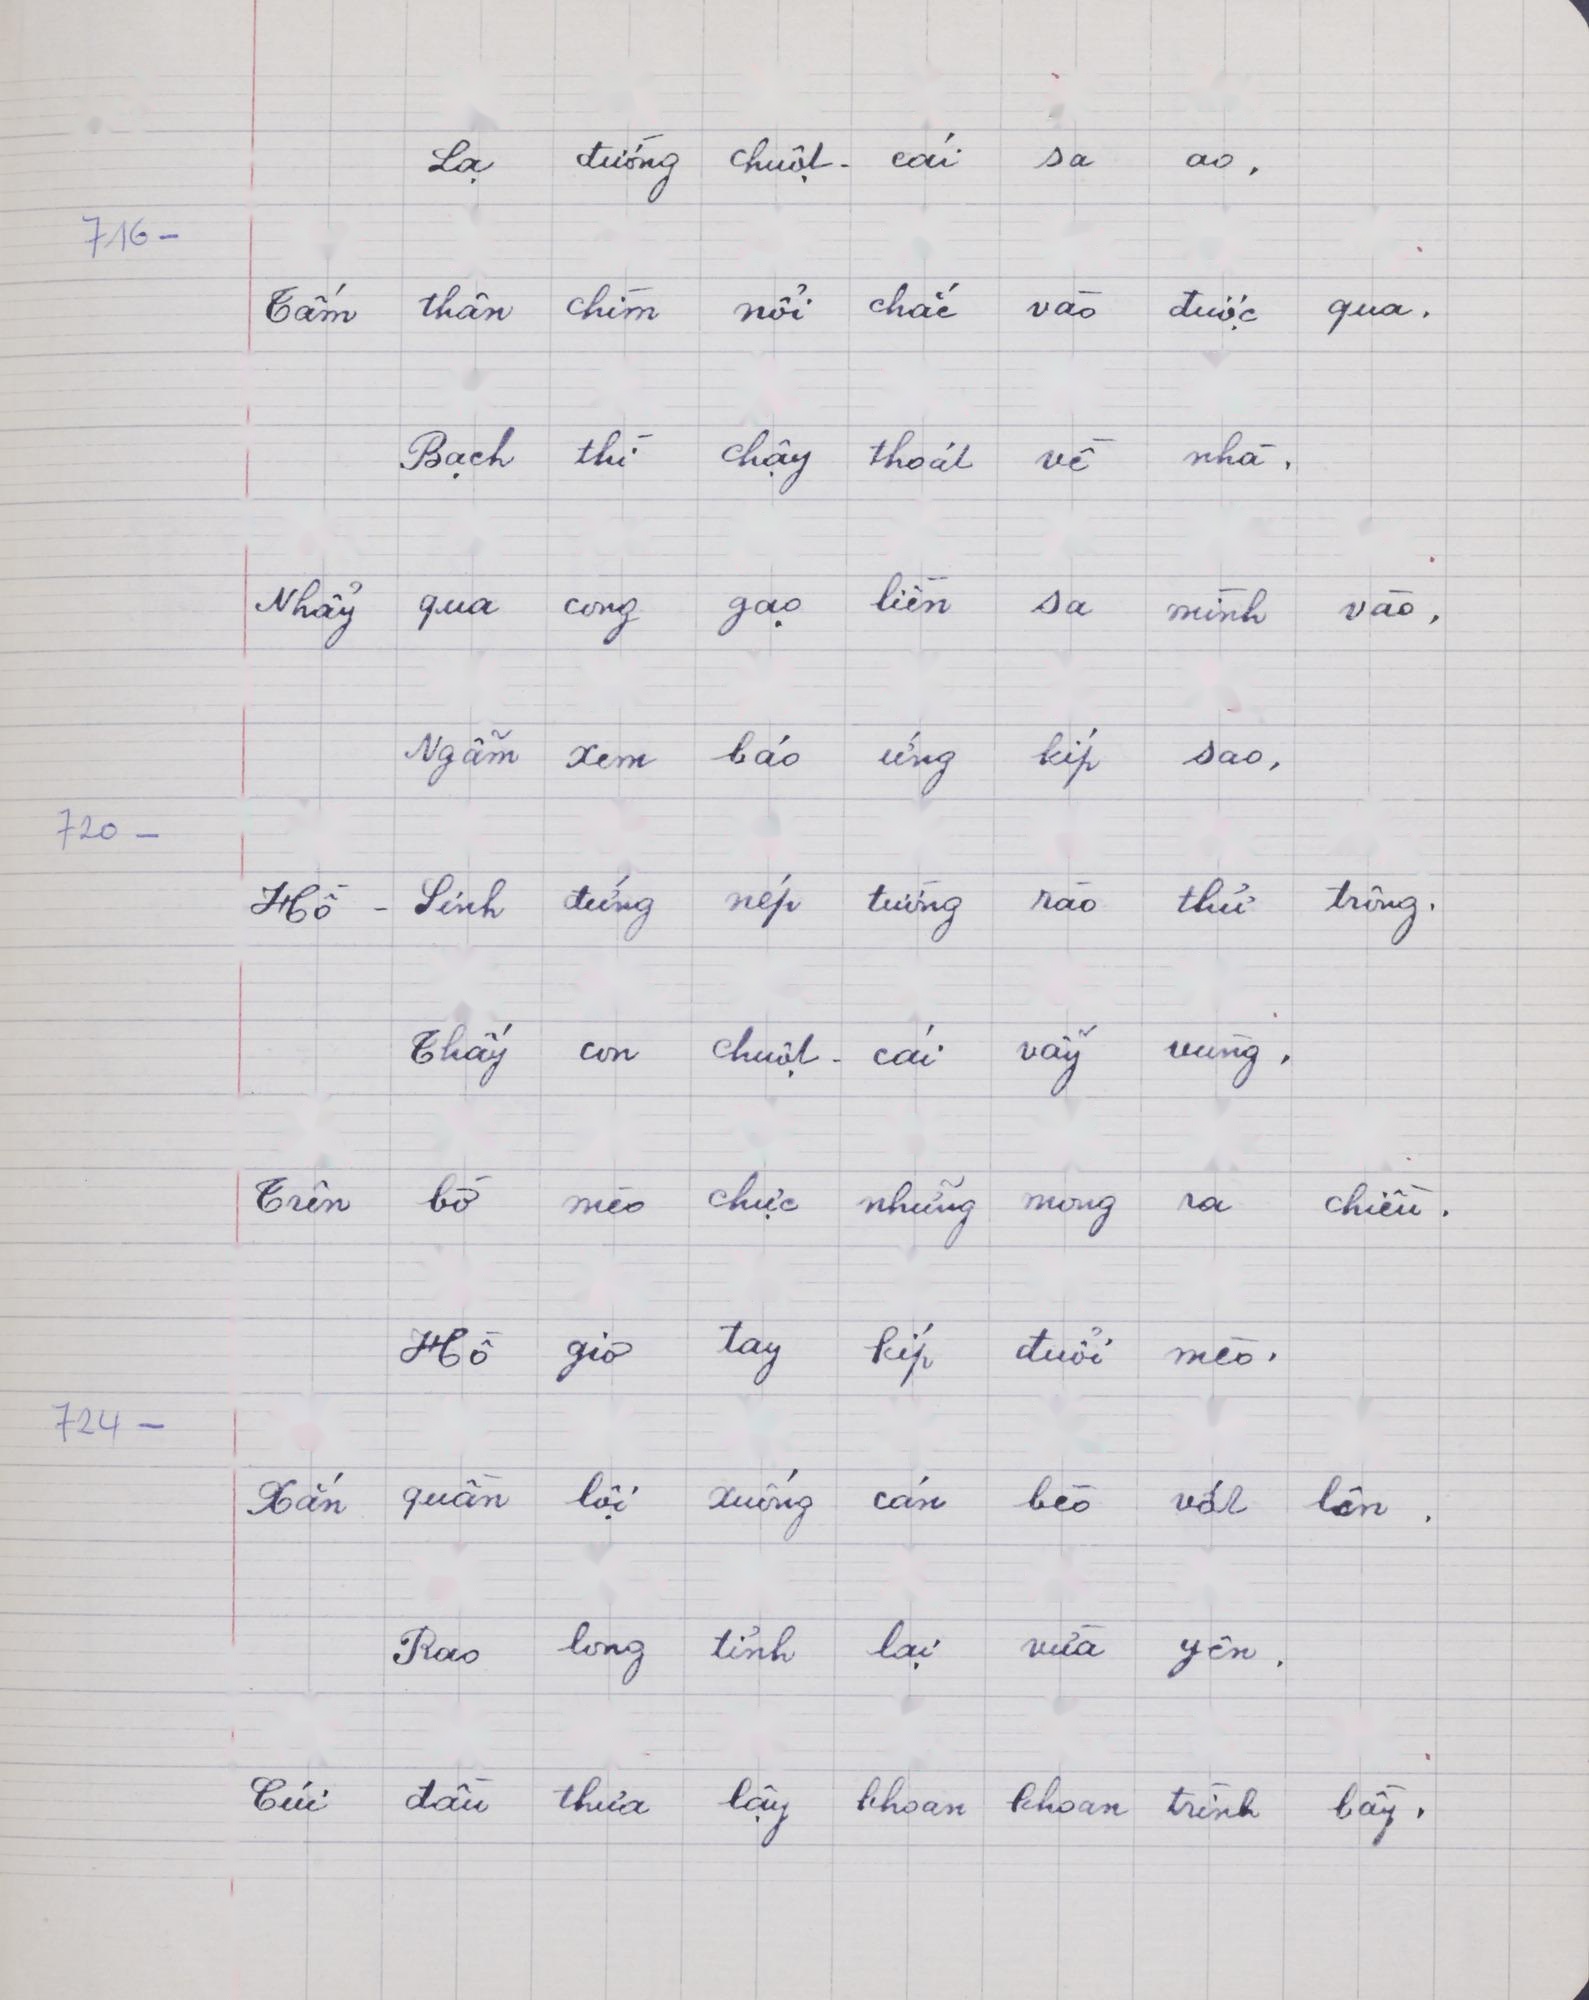 Lạ đường chuột-cái sa ao,
716-
Tấm thân chìm nổi chắc vào được qua.
Bạch thì chậy thoát về nhà,
Nhẩy qua cong gạo liền sa mình vào,
Ngẫm xem báo ứng kíp sao,
720-
Hồ-Sinh đứng nép tường rào thử trông.
Thấy con chuột-cái vẫy vùng,
Trên bờ mèo chực những mong ra chiều.
Hồ giơ tay kíp đuổi mèo,
724-
Xắn quần lội xuống cán bèo vớt lên,
Rao long tỉnh lại vừa yên,
Cúi đầu thưa lậy khoan khoan trình bầy,